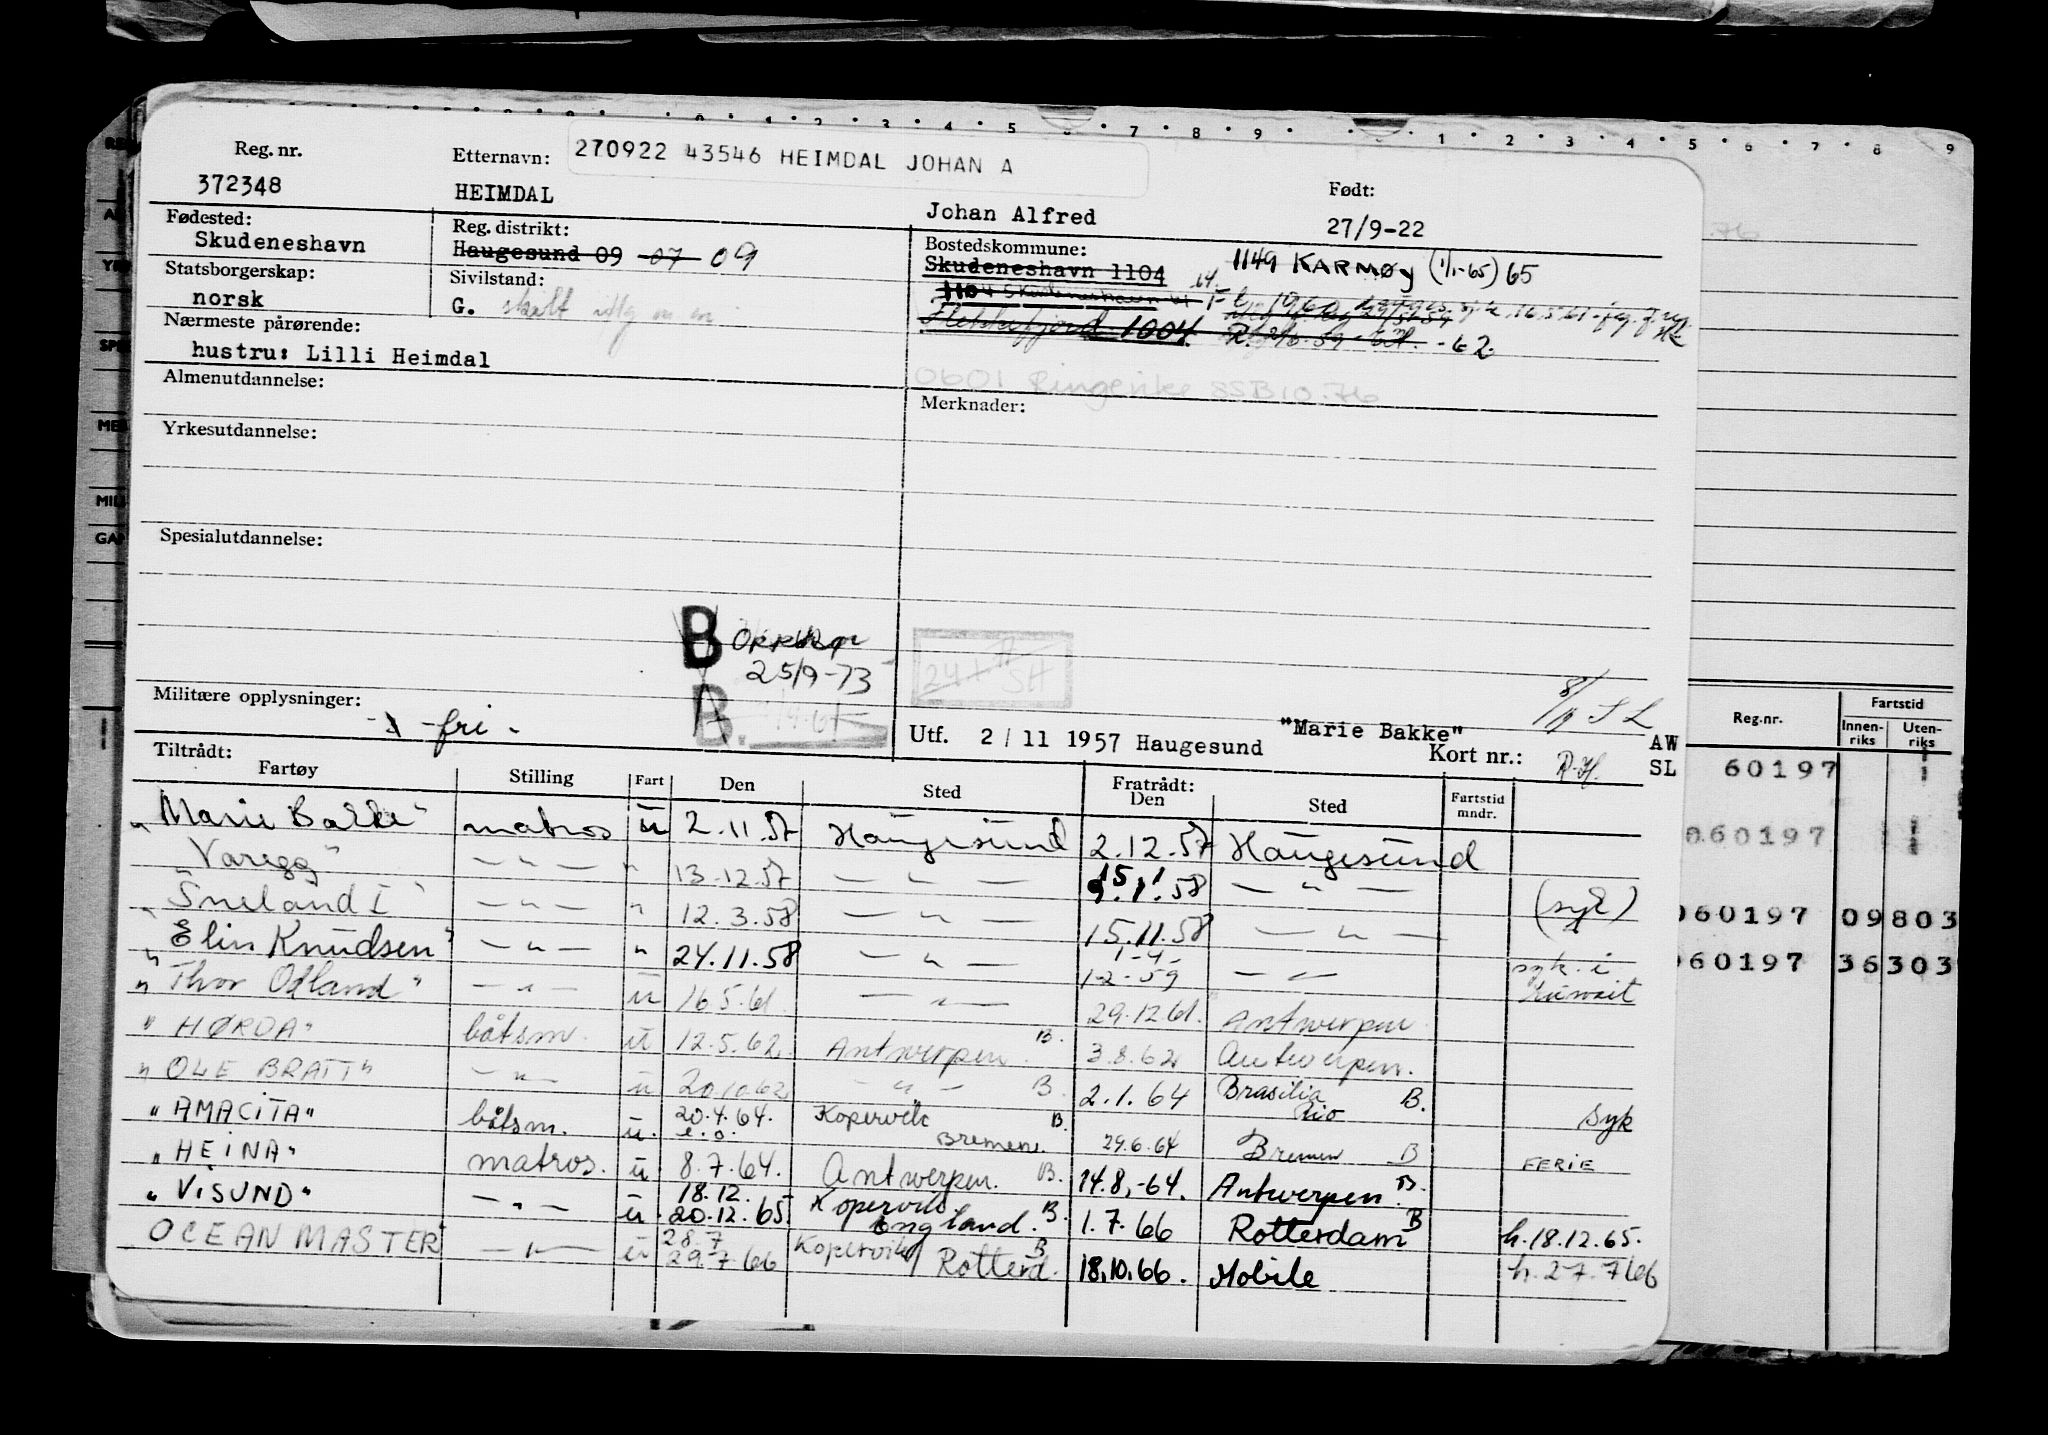 Reg. nr. Etternavn: 270922 43546 HEIMDAL JOHAN A Født:
372348 HEIMDAL Johan Alfred 27/9-22
Fødested: Reg. distrikt: Bostedskommune:
Skudeneshavn Haugesund 09 07 09 Skudeneshavn 1104 1149 KARMØY (1/1-65) 65
Statsborgerskap: Sivilstand:
norsk G. skilt
Nærmeste pårørende: Flekkefjord 1004 -62.
hustru: Lilli Heimdal
Almenutdannelse: 0601 Ringerike SSB 10.76
Merknader:
Yrkesutdannelse:
Spesialutdannelse:
B
25/9-73
B.
Militære opplysninger: -fri-
Utf. 2/11 1957 Haugesund "Marie Bakke" Kort nr.: AW
SL
Tiltrådt:
Fartøy Stilling Fart Den Sted Fratrådt: Den Sted Fartstid mndr.
"Marie Bakke" matros u 2.11.57 Haugesund 2.12.57 Haugesund
"Varegg" — " — " 13.12.57 — " — 15.1.58 — " — (syk)
"Sneland I" — " — " 12.3.58 — " — 15.11.58 — " —
"Elin Knudsen" — " — " 24.11.58 — " — 1-2-59 — " — syk. i Kuwait
"Thor Odland" — " — u 16.5.61 — " — 29.12.61. Antwerpen
"HØRDA" båtsm. u 12.5.62. Antwerpen B. 3.8.62 Antwerpen.
"OLE BRATT" — " — u 20.10.62 — " — B. 2.1.64 Brasilia Rio B. syk
"AMACITA" båtsm. u. 20.4.64. Kopervik Bremen B. 29.6.64 Bremen B FERIE
"HEINA" matros. u 8.7.64. Antwerpen. B. 14.8.-64. Antwerpen B.
"VISUND" — " — u. 18.12. 20.12.65. Kopervik England. B. 1.7.66 Rotterdam B h.18.12.65.
OCEAN MASTER" — " — u 28.7 29.7.66 Kopervik/ Rotterd. B 18.10.66. Mobile h.27.7.66
Reg.nr. Fartstid
Innenriks Utenriks
60197
060197
060197 09803
060197 36303